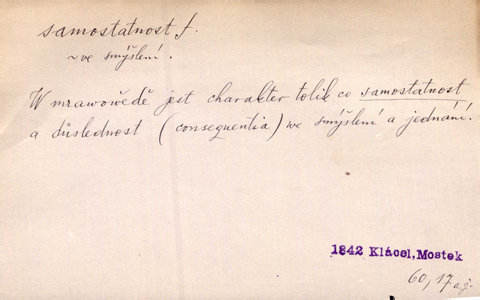 samostatnost f.
~ ve smýšlení.
W mrawowědě jest charakter tolik co samostatnost
a důslednost (consequentia) we smýšlení a jednání.
1842 Klácel, Mostek
60, 17 a j.